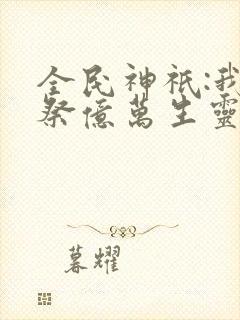 全民神祇:我
祭億萬生靈
暮耀